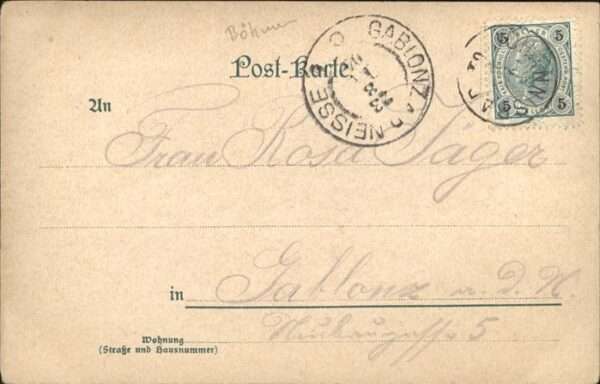 Böhmen
Post-Karte.
GABLONZ A. D. NEISSE
5 5
5 5
An
Frau Rosa Jäger
in Gablonz a. d. N.
5
Wohnung
(Straße und Hausnummer)